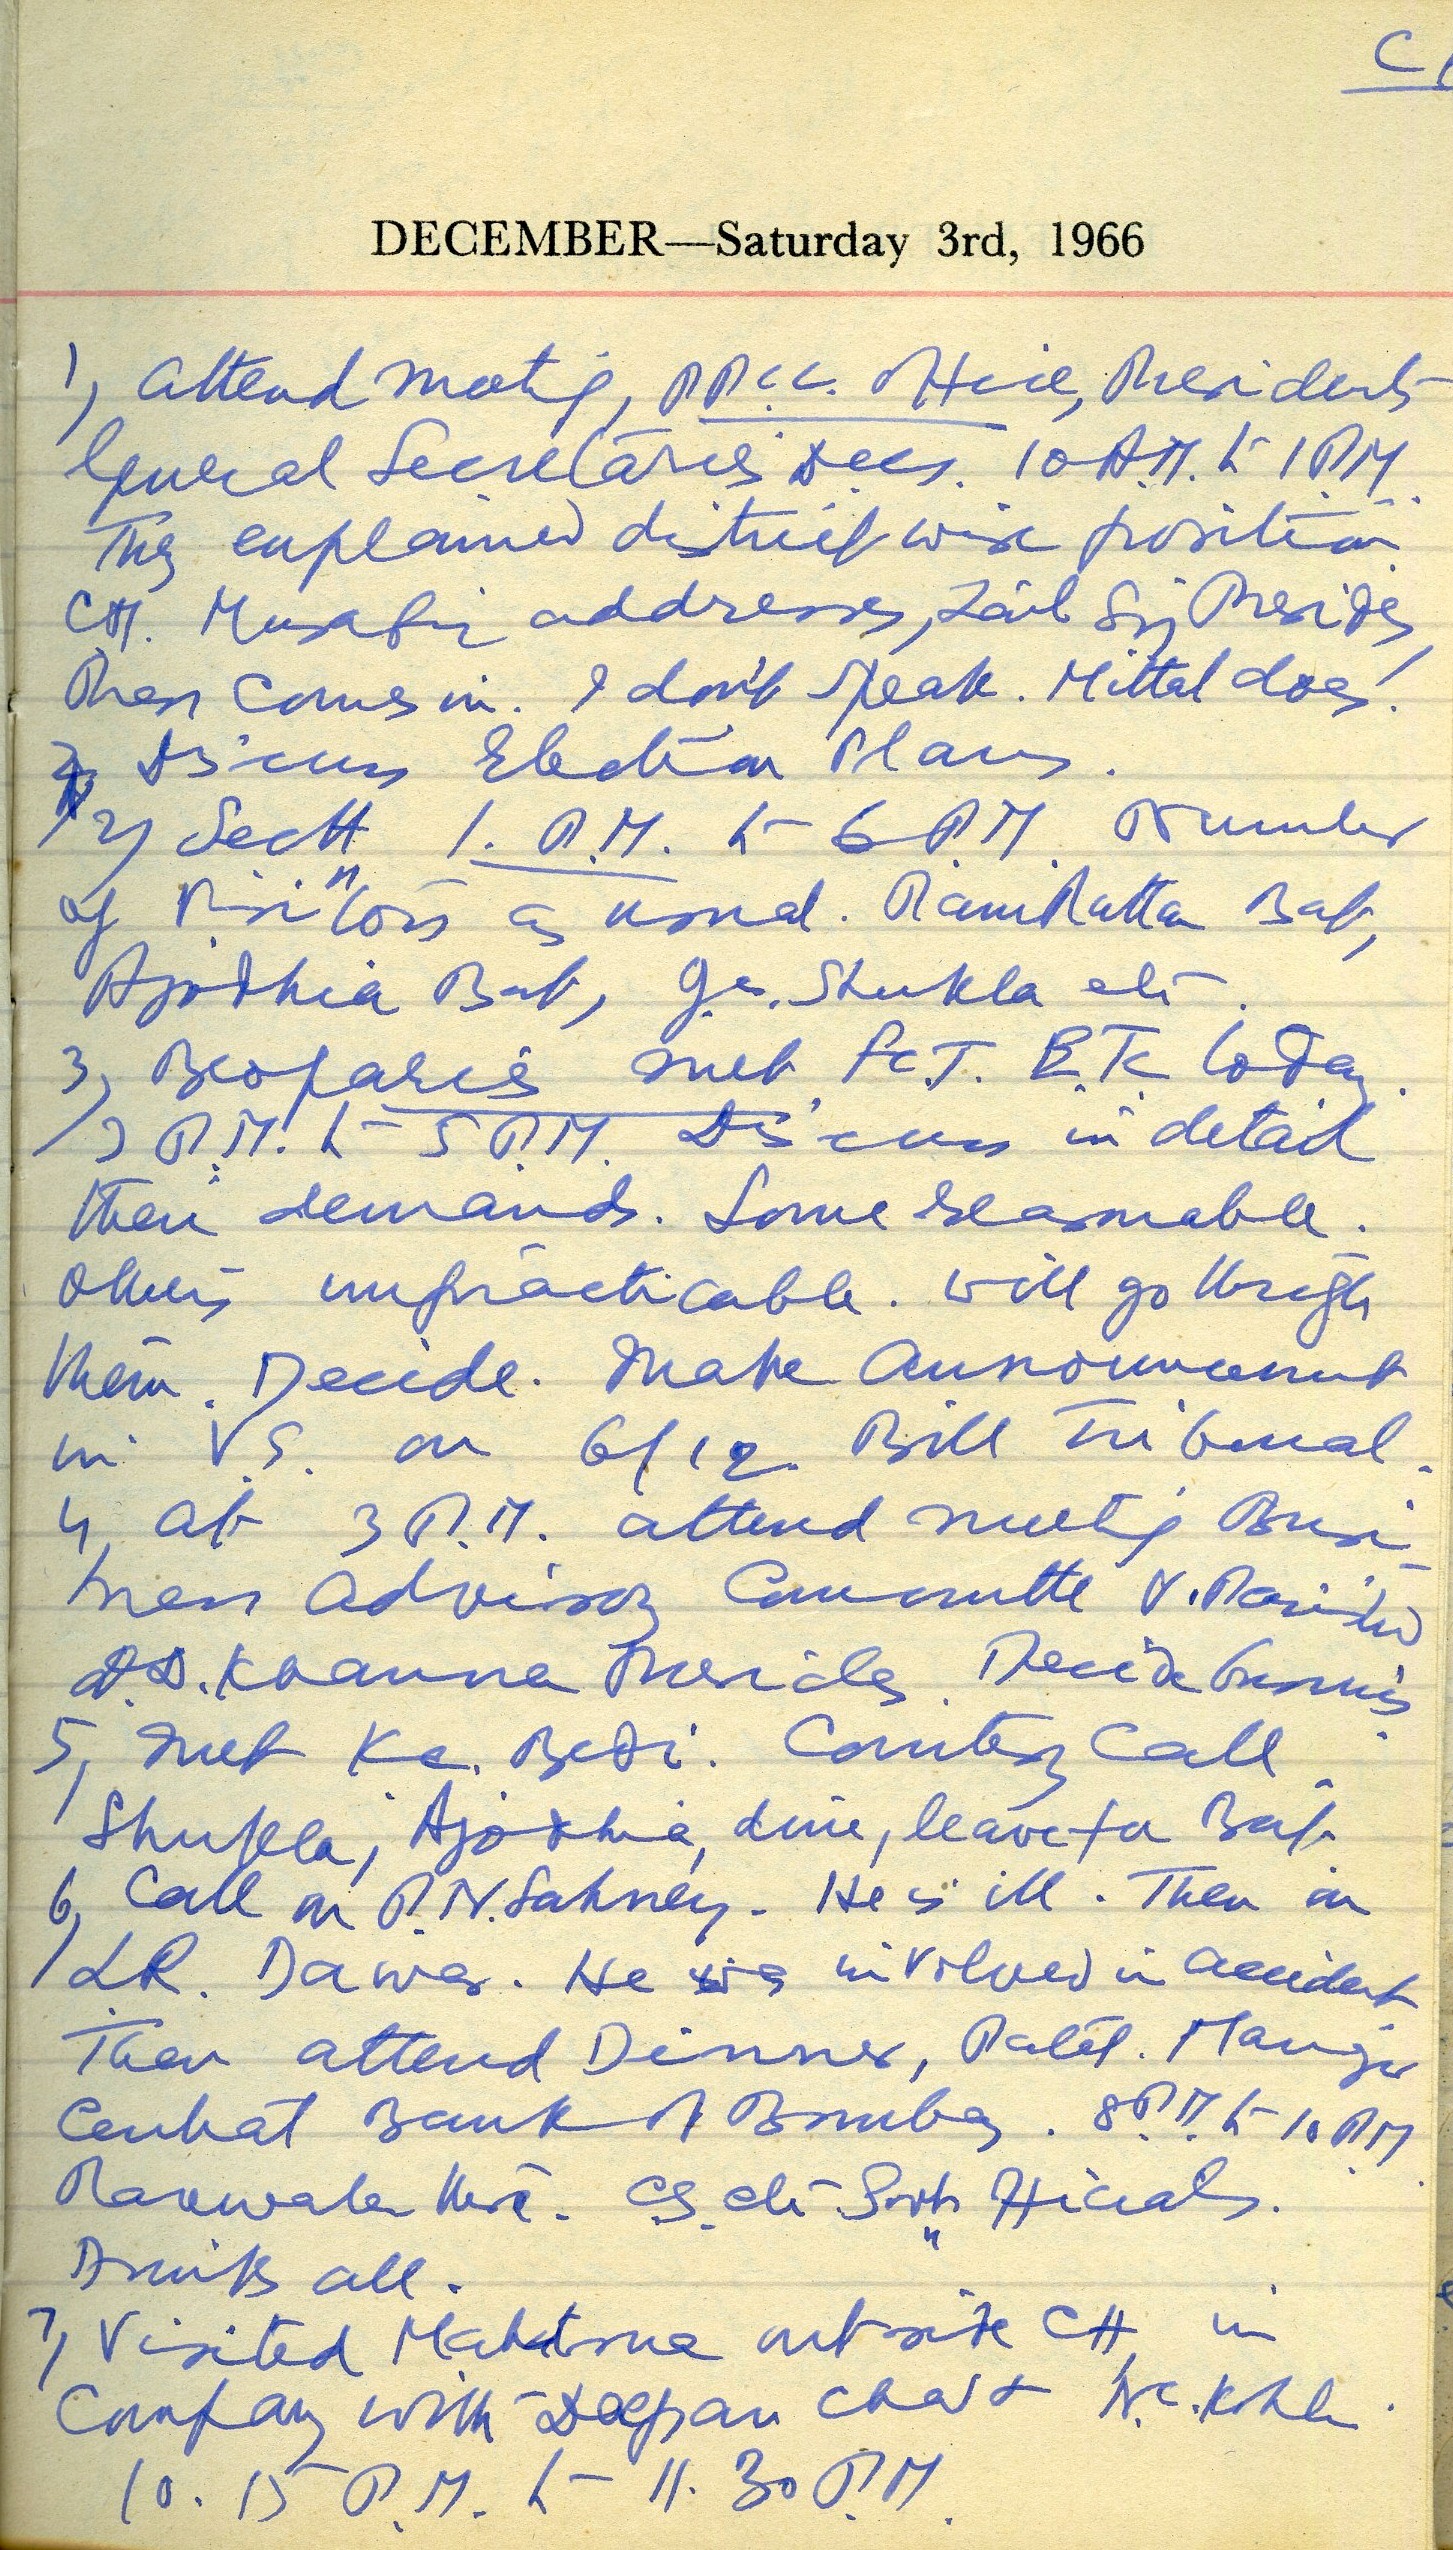 DECEMBER—Saturday 3rd, 1966
1, Attend meeting, P.P.C.C. Office, Presidents
General Secretaries Dccs. 10 A.M. to 1 PM
They explained district wise position
CM. Musafir addresses, Zail Presides,
Press comes in. I don't speak. Mittal does!
Discuss Election Plans.
2, Sectt 1. P.M. to 6 P.M. Number
of Visitors as usual. Ram Rattan Bat,
Ajodhia Bat, Shukla etc.
3, Beoparis met E.T.C. today.
3 P.M. to 5 P.M. Discuss in detail
their demands. Some reasonable.
Others impracticable. Will go through
them. Decide. Make announcement
in V.S. on 6/12. Bill Tribunal.
4, At 3 P.M. attend meeting Busi-
ness Advisory Committee V. Parishad
D.D. Khanna presides. Decide business
5, Met Bedi. Courtesy Call.
Shukla, Ajodhia, dine, leave for Bat.
6, Call on P.N. Sahney. He is ill. Then on
L.R. Dawar. He was involved in accident
Then attend Dinner, Patel. Manager
Central Bank of Bombay. 8 P.M. to 10 PM
there. C.S. etc. Govt Officials.
Drinks all.
7, Visited Mahatma outside CH, in
Company with Deepan Chand Kohli.
10.15 P.M. to 11.30 P.M.